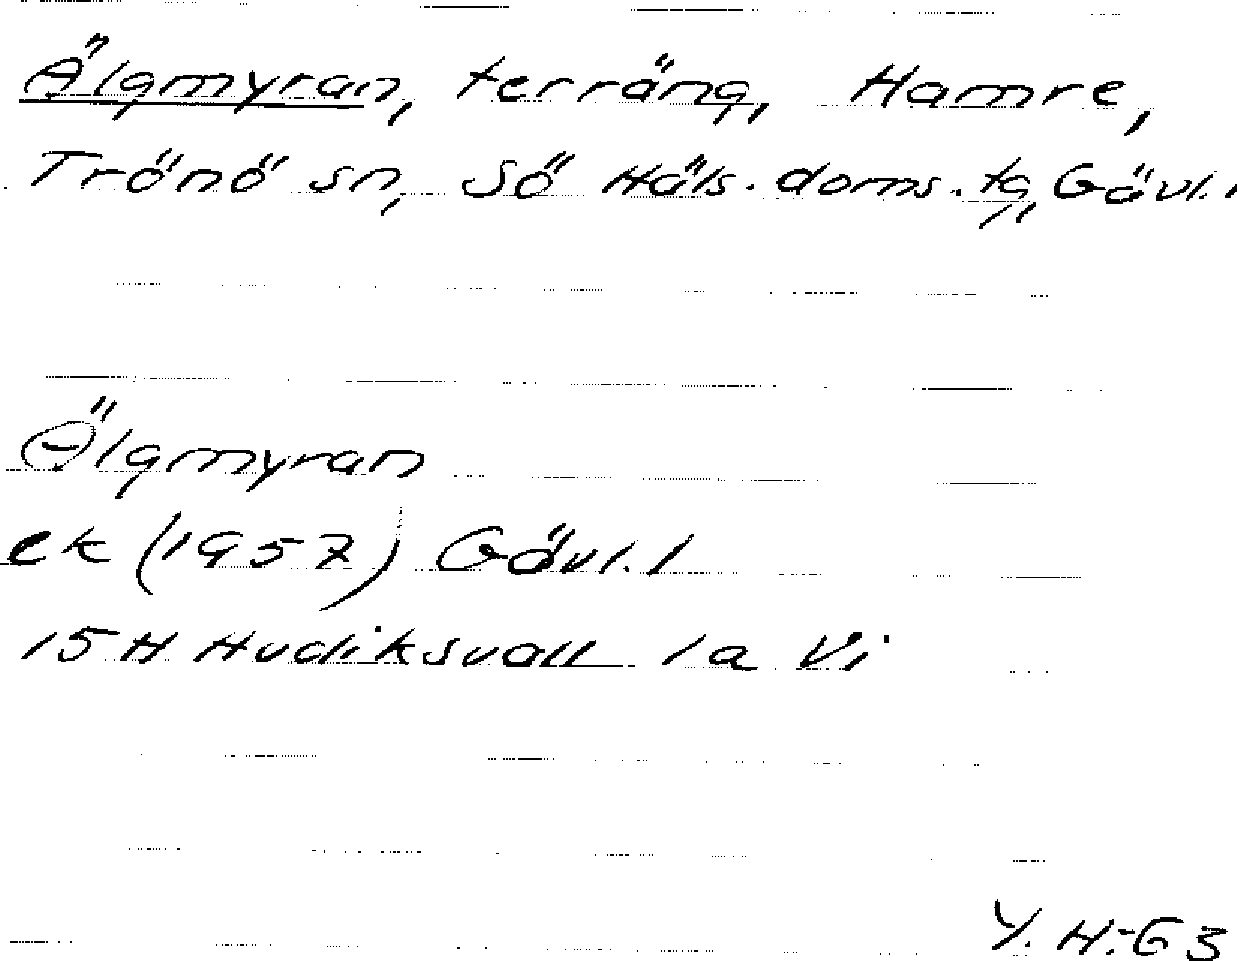 Älgmyran, terräng, Hamre,
Trönö sn, Sö Häls. doms. tg, Gävl. l
Älgmyran
ek (1957) Gävl. l
15 H Hudiksvall 1a Vi
Y. H:-63